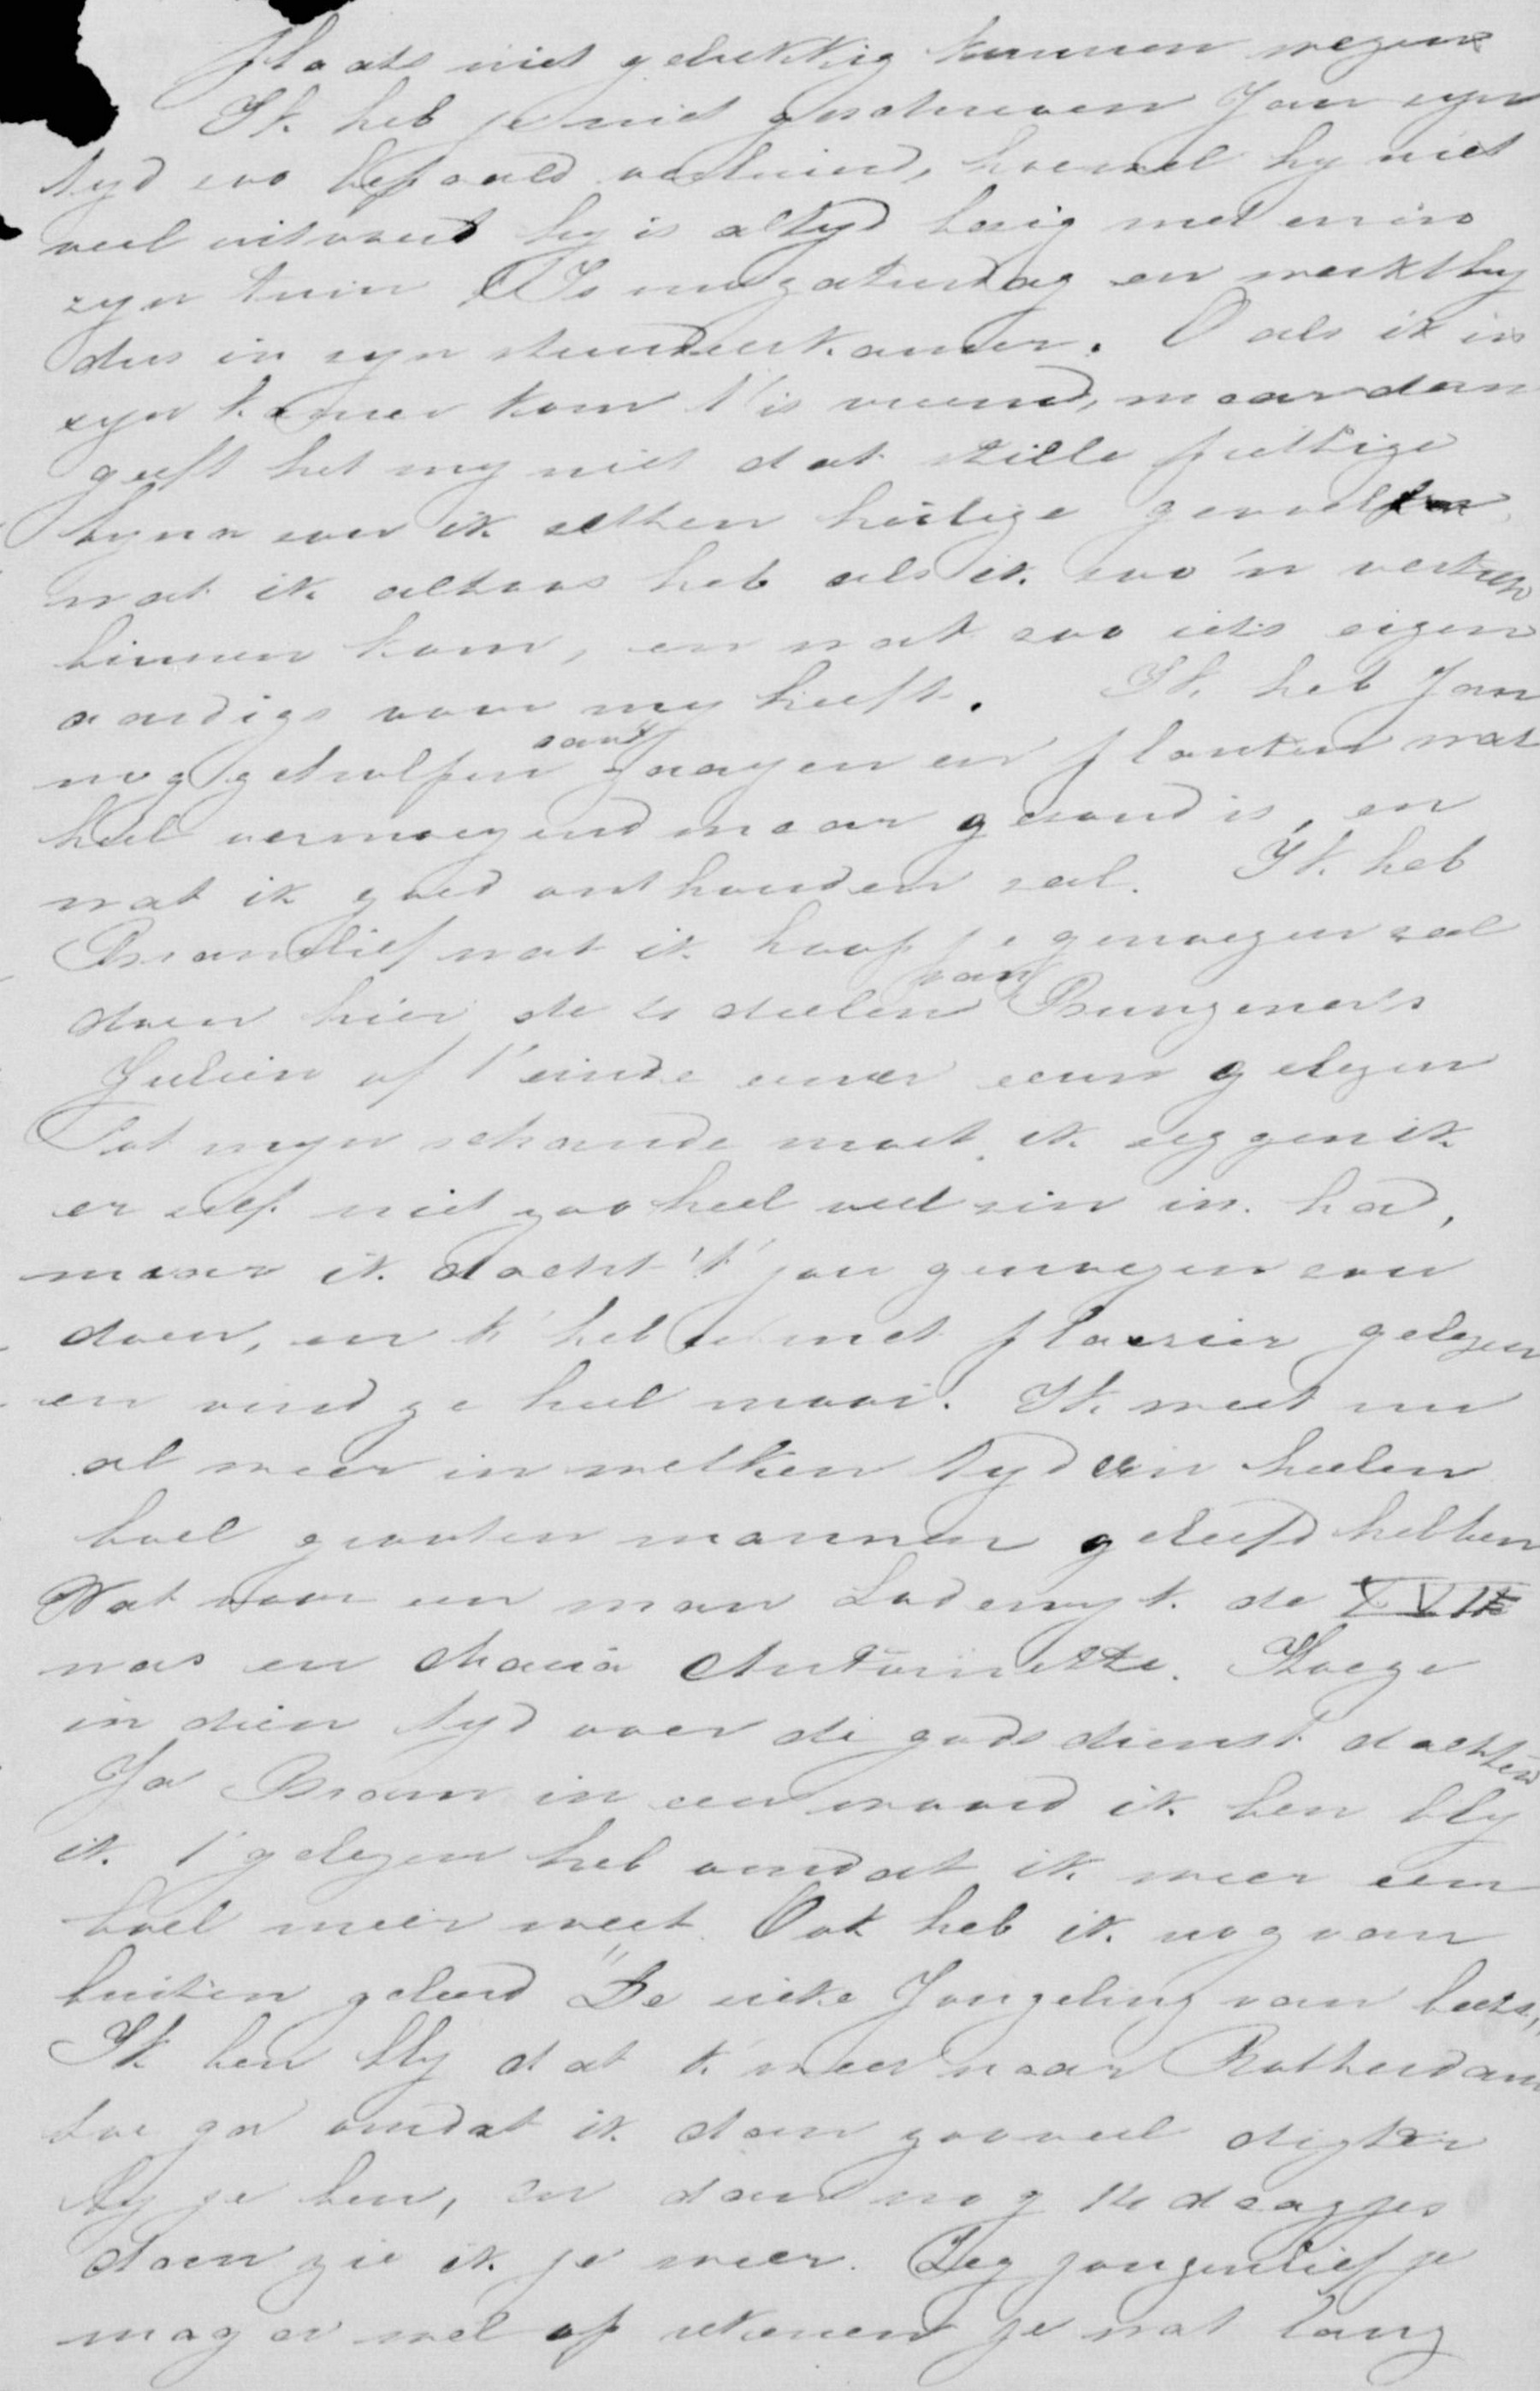 plaats niet gelukkig kunnen wezen
Ik heb je niet geschreven Jan zyn
tyd zoo bepaald verluierd, hoewel hy niet
veel uitvoerd hy is altyd bezig met en in
zyn tuin Is nu zaturdag en werkt hy
dus in zyn studeerkamer. O als ik in
zyn kamer kom t'is vreemd, maar dan
geeft het my niet dat stille prettige
byna zou ik zethen heilige gevoel
wat ik althoos heb als ik zoo'n vertrek
binnen kom, en wat zoo iets eigen
aardigs voor my heeft. Ik heb Jan
nog geholpen zand graayen en planten wat
heel vermoeyend maar gezond is, en
wat ik goed onthouden zal. Ik heb
Bramlief wat ik hoop je genoegen zal
doen hier de 4 deelen van Bungener's
Julien of t'einde eener eeuw gelezen
Tot myn schande moet ik zeggen ik
er zelf niet zoo heel veel zin in had,
maar ik dacht 't jou genoegen zou
doen, en k' heb ze met plaizier gelezen
en vind ze heel mooi. Ik weet nu
al weer in welken tyd een heelen
boel grooten mannen geleefd hebben
Wat voor een man Lodewyk de XVI
was en Maria Antoinette. Hoe ze
in dien tyd over de godsdienst dachten
Ja Bram in een woord ik ben bly
ik t' gelezen heb omdat ik weer een
boel meer weet. Ook heb ik nog van
buiten geleerd "De rieke Jongeling van Beets,,
Ik ben bly dat k' weer naar Rotherdam
toe ga omdat ik dan zooveel digter
by je ben, en dan nog daagjes
dan zie ik je weer. Zeg jongenlief je
mag er wel op rekenen je wat lang